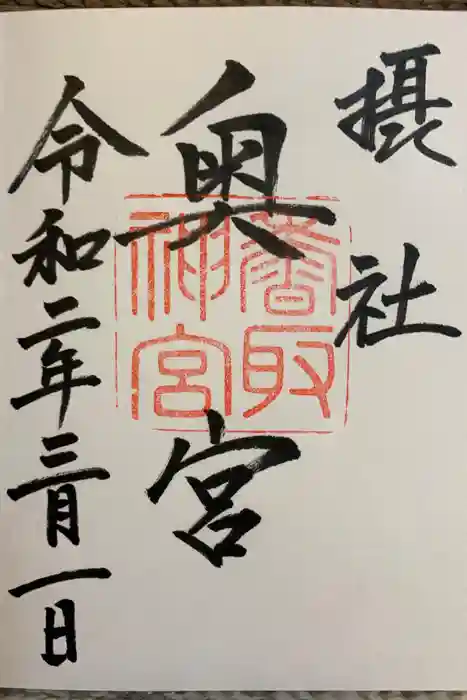 摂社
奥宮
香取神宮
令和二年三月一日